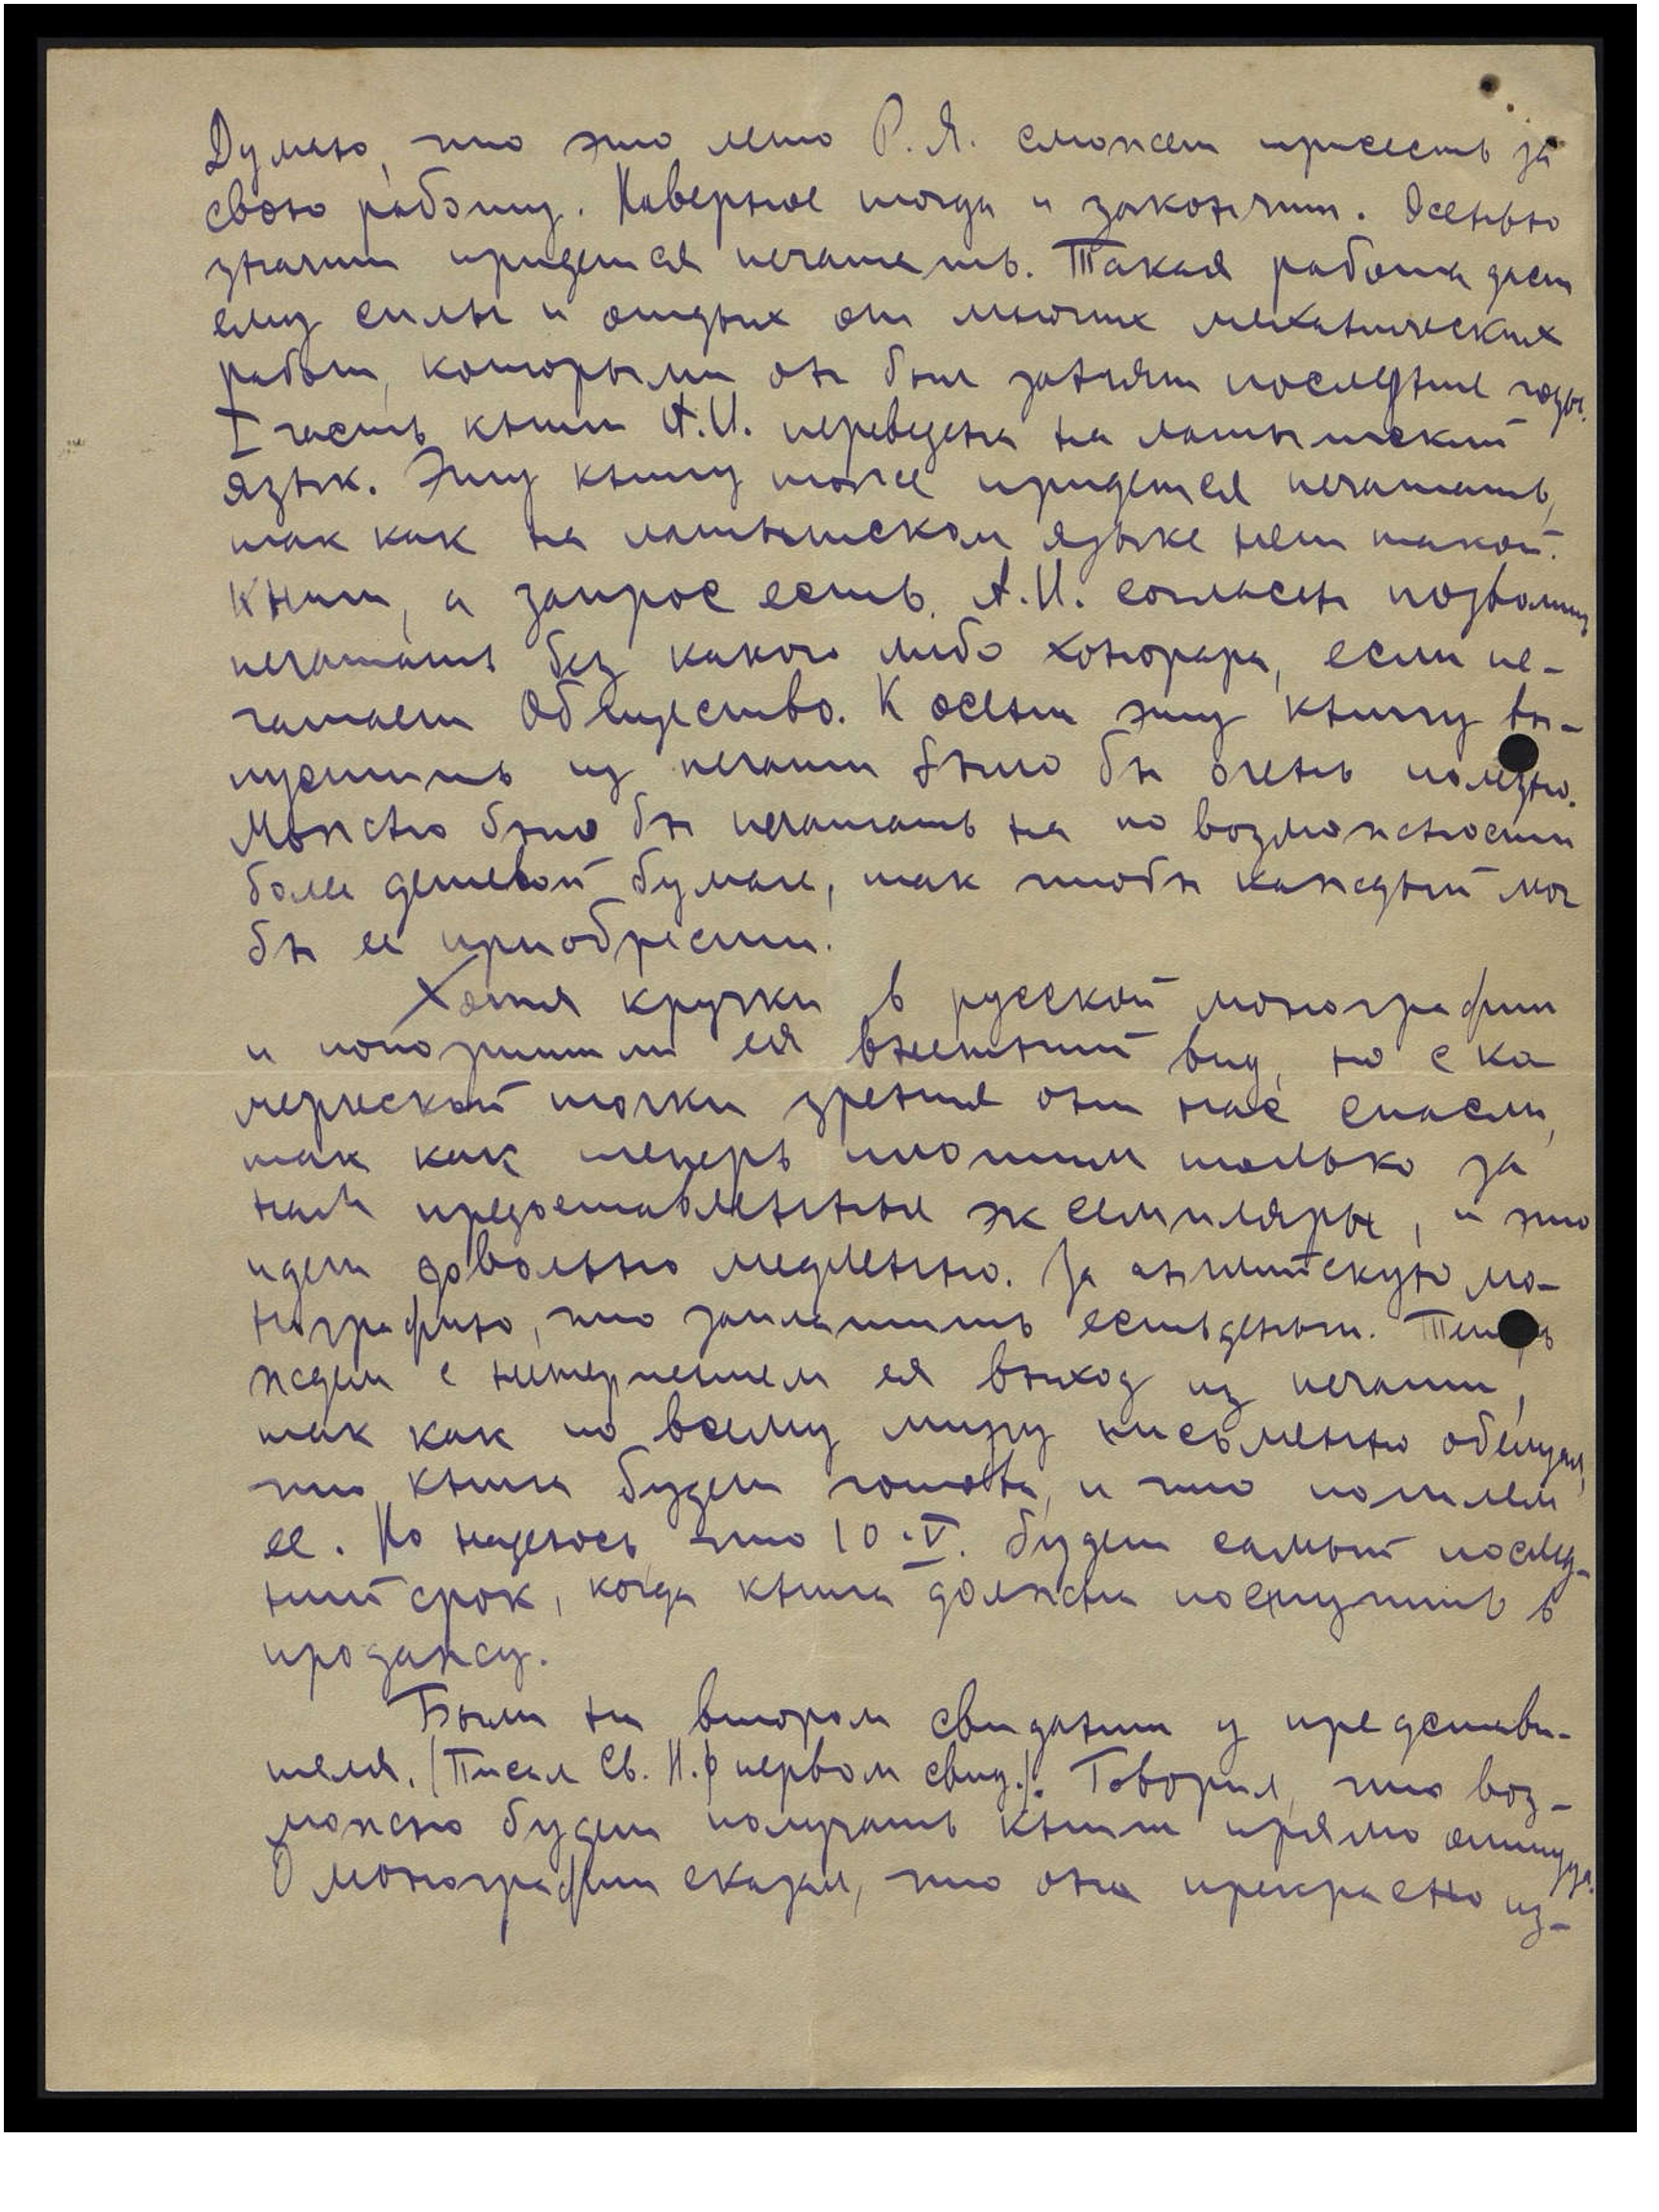 Думаю, что это лето Р.Я. сможет присесть за
свою работу. Наверное тогда и закончит. Осенью
значит придется печатать. Такая работа даст
ему силы и отдых от многих механических
работ, которыми он был занят последние годы.
I часть книги А.И. переведена на латышский
язык. Эту книгу тоже придется печатать,
так как на латышском языке нет такой
книги, а запрос есть. А.И. согласен позволить
печатать без какого либо хонорара, если пе-
чатает Общество. К осени эту книгу вы-
пустить из печати было бы очень полезно.
Можно было бы печатать на по возможности
более дешевой бумаге, так чтобы каждый мог
бы ее приобрести.
Хотя крючки в русской монографии
и попортили ея внешний вид, но с ко
мерческой точки зрения они нас спасли,
так как теперь платим только за
нам предоставленные экземпляры, и это
идет довольно медленно. За английскую мо-
нографию, что заплатить есть деньги. Теперь
ждем с нетерпением ея выход из печати,
так как по всему миру письменно обещал,
что книга будет готова, и что пошлем
ее. Но надеюсь что 10.V. будет самый послед-
ний срок, когда книга должна поступить в
продажу.
Были на втором свидании у представи-
теля. (Писал Св. Н. о первом свид.). Говорил, что воз-
можно будет получать книги прямо оттуда.
О монографии сказал, что она прекрасно из-